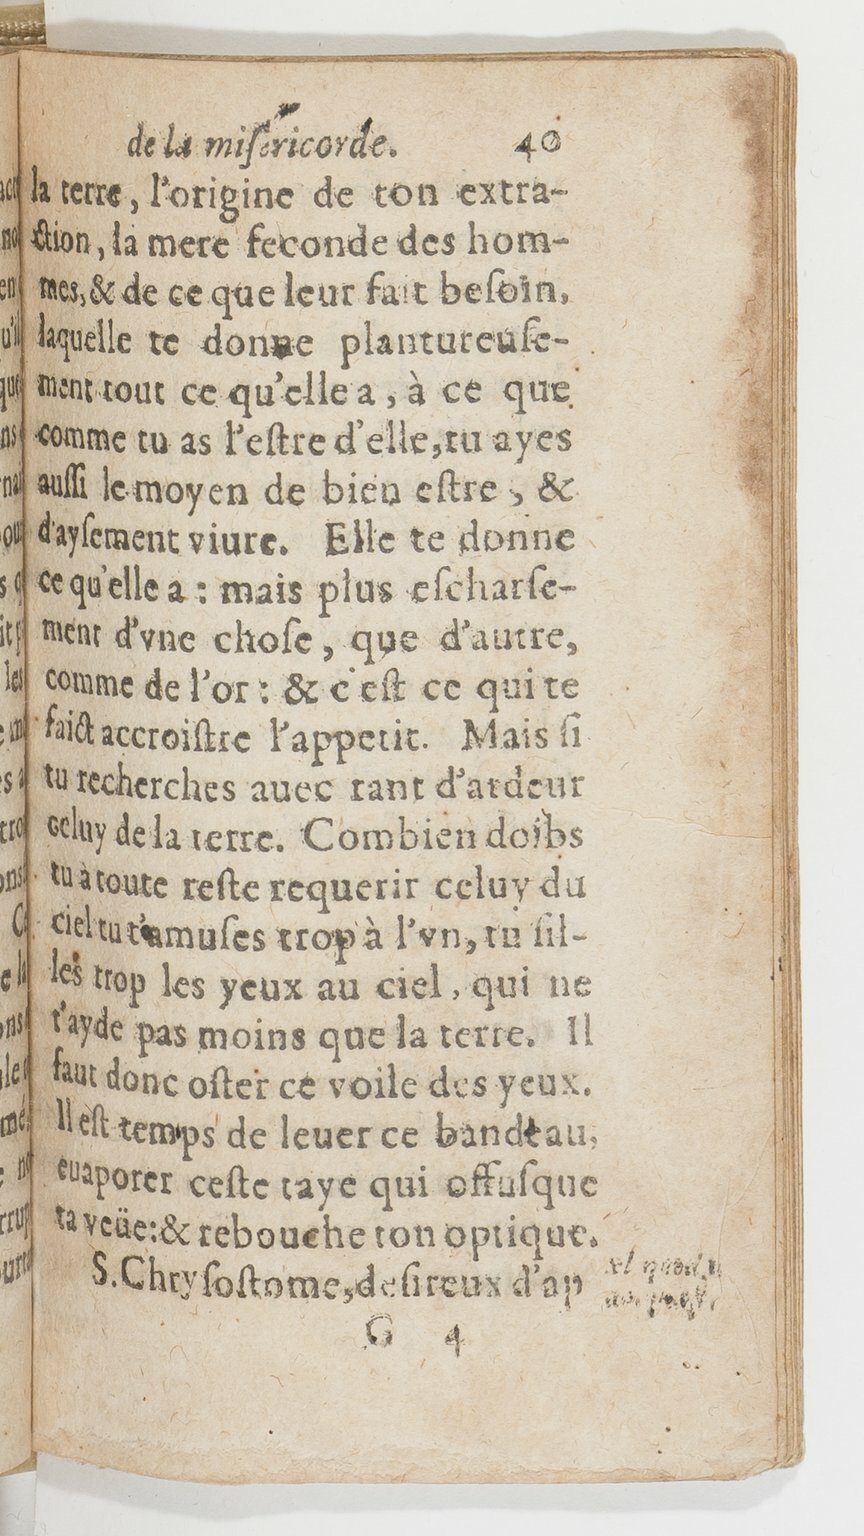 de la miſericorde. 40
la terre, l'origine de ton extra-
ction, la mere feconde des hom-
mes, & de ce que leur fait beſoin,
laquelle te donne plantureuſe-
ment tout ce qu'elle a, à ce que
comme tu as l'eſtre d'elle, tu ayes
auſſi le moyen de bien eſtre, &
d'ayſement viure. Elle te donne
ce qu'elle a : mais plus eſcharſe-
ment d'vne choſe, que d'autre,
comme de l'or : & c'eſt ce qui te
faict accroiſtre l'appetit. Mais ſi
tu recherches auec tant d'ardeur
celuy de la terre. Combien doibs
tu à toute reſte requerir celuy du
ciel tu t'amuſes trop à l'vn, tu ſil-
les trop les yeux au ciel, qui ne
t'ayde pas moins que la terre. Il
faut donc oſter ce voile des yeux.
Il eſt temps de leuer ce bandeau,
euaporer ceſte taye qui offuſque
ta veüe: & rebouche ton optique.
S. Chryſoſtome, deſireux d'ap
G 4